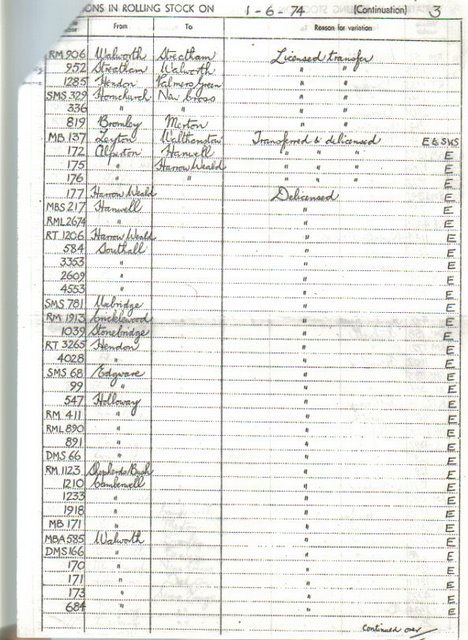 ONS IN ROLLING STOCK ON 1-6-74 (Continuation) 3
From To Reason for variation
RM 906 Walworth Streatham Licensed transfer
952 Streatham Walworth " "
1285 Hendon Palmers Green " "
SMS 329 Hornchurch New Cross " "
336 " " " "
819 Bromley Merton " "
MB 137 Leyton Walthamstow Transferred & delicensed E & SMS
172 Alperton Hanwell " " " E
175 " Harrow Weald " " " E
176 " " " " " E
177 Harrow Weald Delicensed E
MBS 217 Hanwell " E
RML 2674 " " E
RT 1206 Harrow Weald " E
584 Southall " E
3353 " " E
2609 " " E
4553 " " E
SMS 781 Uxbridge " E
RM 1913 Cricklewood " E
1039 Stonebridge " E
RT 3265 Hendon " E
4028 " " E
SMS 68 Edgware " E
99 " " E
547 Holloway " E
RM 411 " " E
RML 890 " " E
891 " " E
DMS 66 " " E
RM 1123 Shepherds Bush " E
1210 Camberwell " E
1233 " " E
1918 " " E
MB 171 " " E
MBA 585 Walworth " E
DMS 166 " " E
170 " " E
171 " " E
173 " " E
684 " " E
Continued over